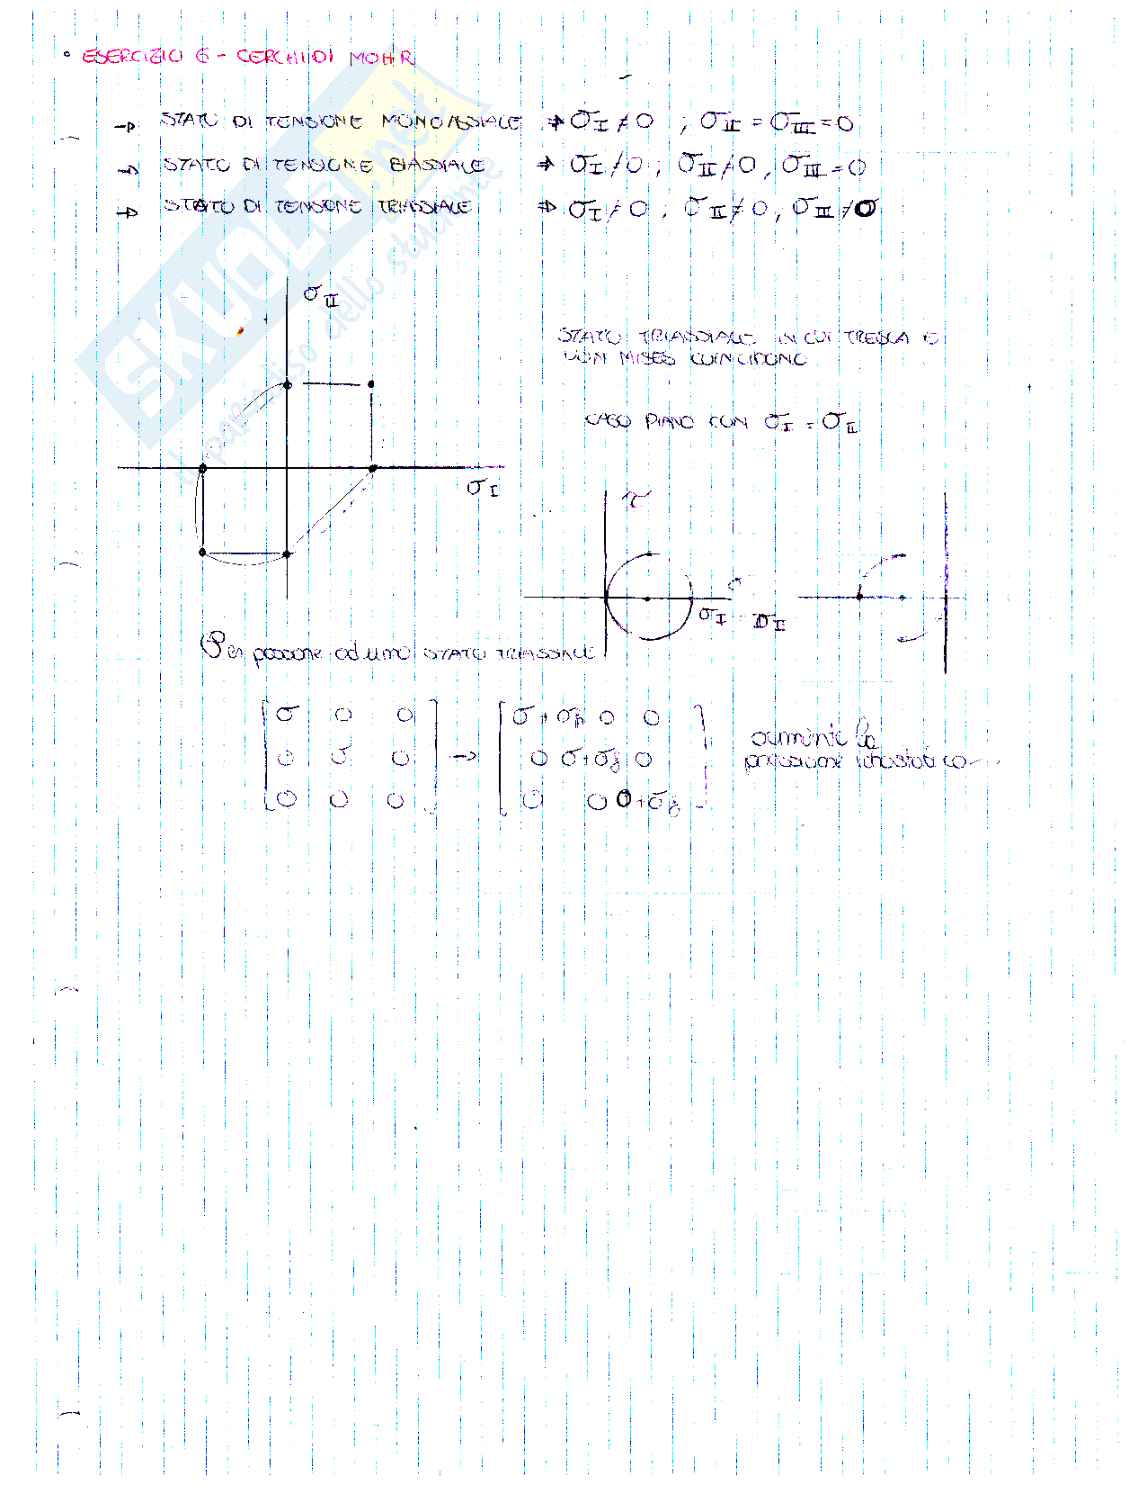 ° ESERCIZIO 6 - CERCHI DI MOHR
→ STATO DI TENSIONE MONOASSIALE ⇒ σI ≠ 0 ; σII = σIII = 0
→ STATO DI TENSIONE BIASSIALE ⇒ σI ≠ 0 ; σII ≠ 0, σIII = 0
→ STATO DI TENSIONE TRIASSIALE ⇒ σI ≠ 0 ; σII ≠ 0, σIII ≠ 0
σII
σI
STATO TRIASSIALE IN CUI TRESCA E
VON MISES COINCIDONO
CASO PIANO CON σI = σII
τ
σ
σI = σII
Per passare ad uno STATO TRIASSIALE
[σ 0 0] → [σ+σp 0 0]
[0 σ 0] [0 σ+σp 0]
[0 0 0] [0 0 0+σp]
la
pressione idrostatica
SKUOLA.net
il paradiso dello studente